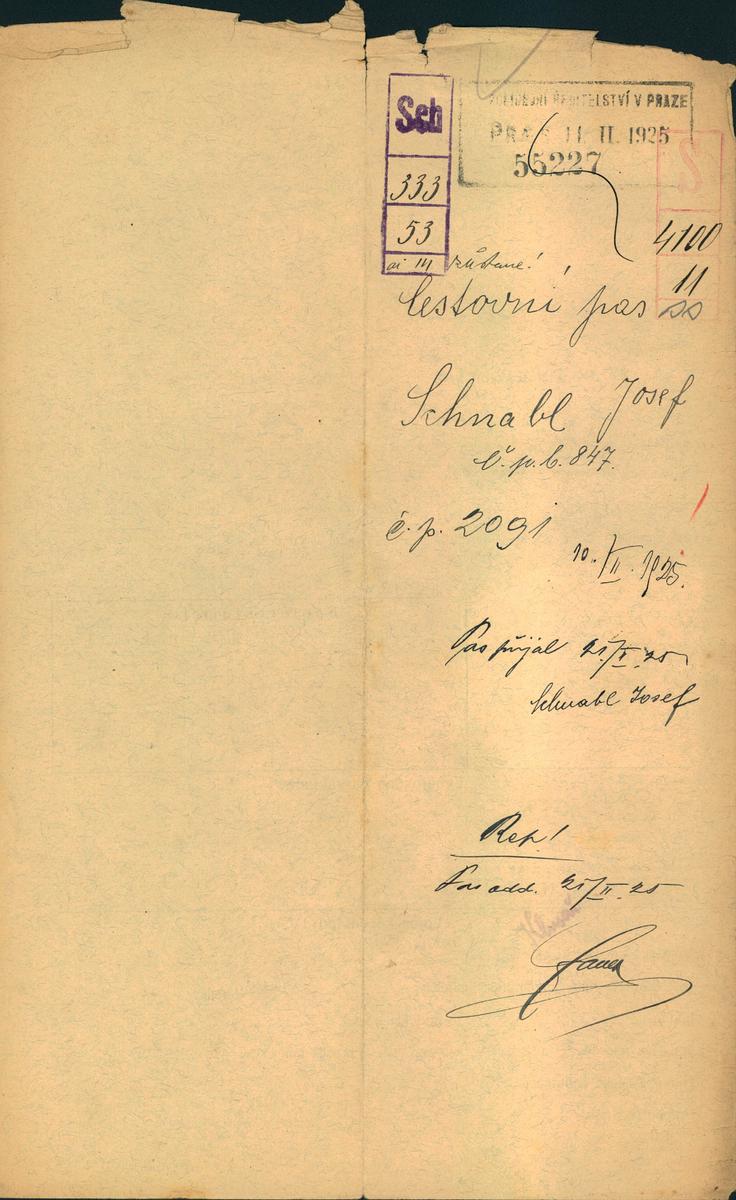 Sch
333
53
ai 14 zůstane!
POLICEJNÍ ŘEDITELSTVÍ V PRAZE
PRAG 11. II. 1925
55227
S
4100
11
Cestovní pas
Schnabl Josef
č. p. b. 847.
č. p. 2091
10./II. 1925.
Pas přijal 21/II. 25
Schnabl Josef
Rep!
Pas odd. 21/II. 25